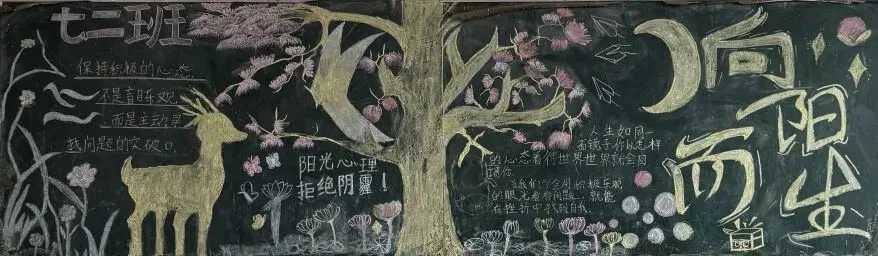 七二班
保持积极的心态
不是盲目乐观
而是主动寻
找问题的突破口
阳光心理
拒绝阴霾！
人生如同一
面镜子你以怎样
的心态看待世界世界就会回
馈你
我们学会用积极乐观
的眼光看待问题，就能
在挫折中找到
向阳而生